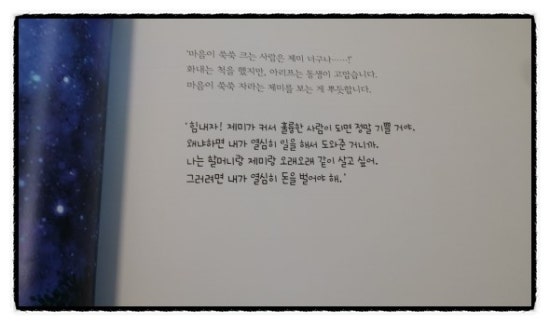 '마음이 쑥쑥 크는 사람은 제미 너구나……!'
화내는 척을 했지만, 아리프는 동생이 고맙습니다.
마음이 쑥쑥 자라는 제미를 보는 게 뿌듯합니다.
'힘내자! 제미가 커서 훌륭한 사람이 되면 정말 기쁠 거야.
왜냐하면 내가 열심히 일을 해서 도와준 거니까.
나는 할머니랑 제미랑 오래오래 같이 살고 싶어.
그러려면 내가 열심히 돈을 벌어야 해.'